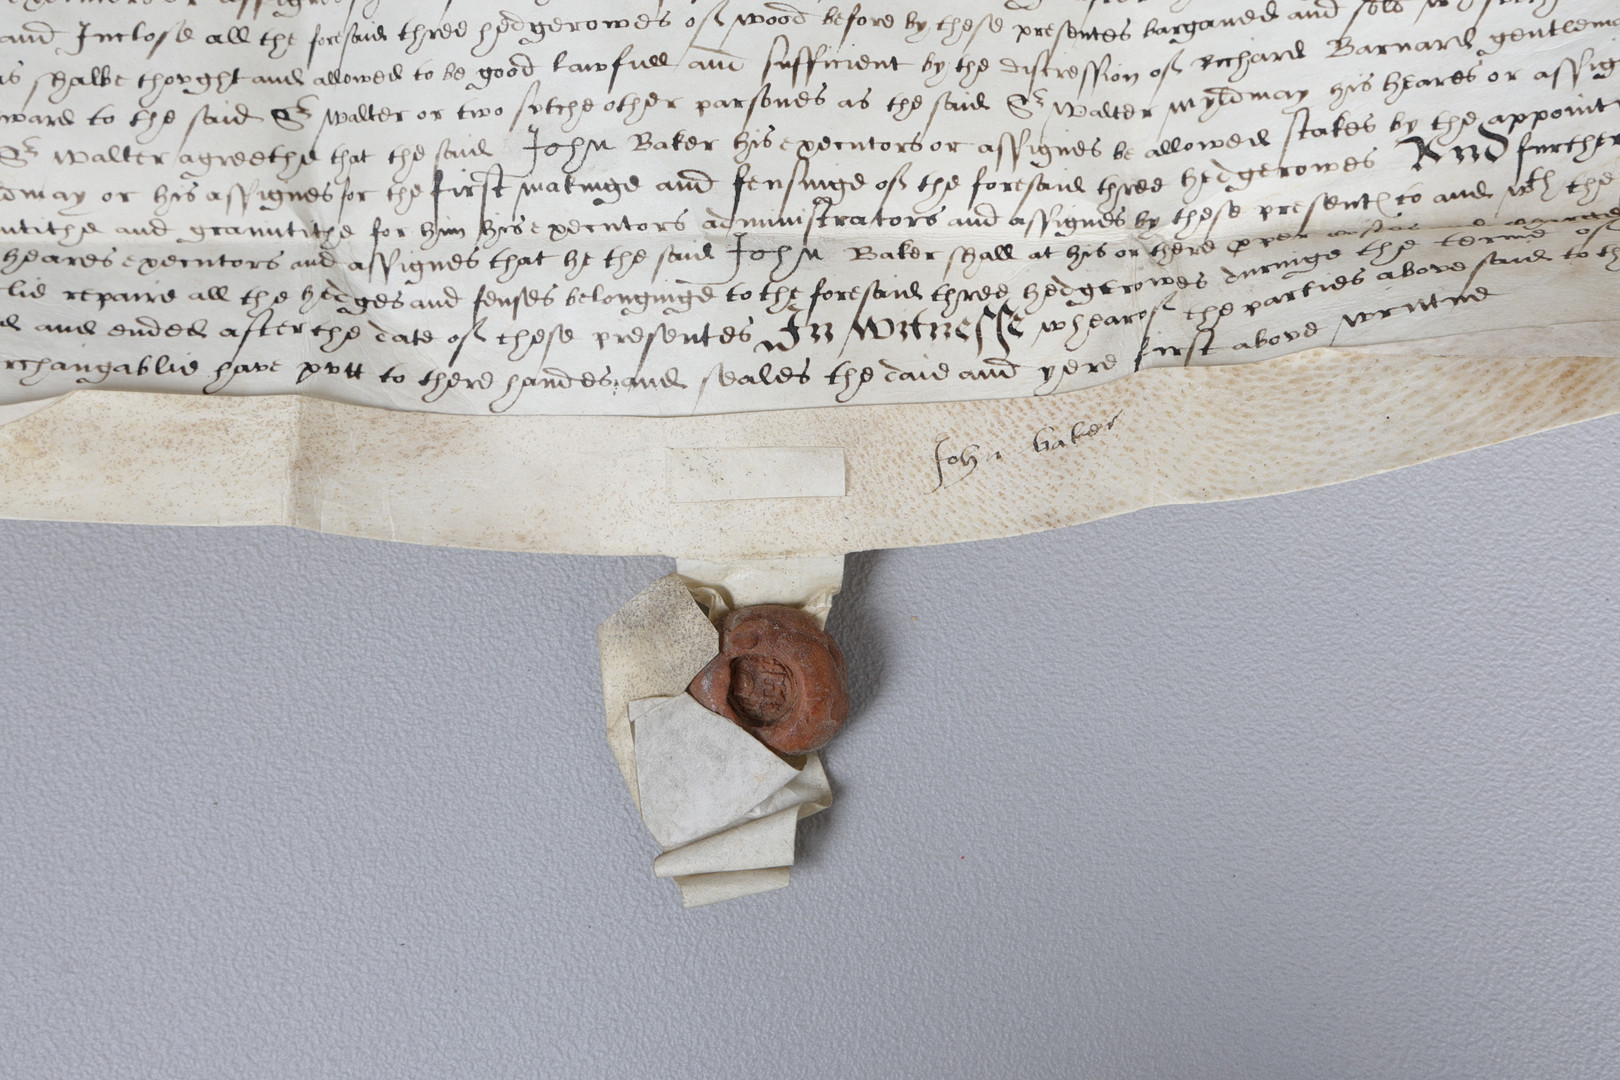 and Inclose all the foresaid three hedgerowes of wood before by these presentes barganed and sold
as shalbe thought and allowed to be good lawfull and sufficient by the discression of Richard Barnard gentlem
ward to the said Sr Walter or two sutche other parsones as the said Sr Walter Myldmay his heares or assig
Sr Walter agreethe that the said John Baker his executors or assignes be allowed stakes by the appoint
dmay or his assignes for the first makinge and fensinge of the foresaid three hedgerowes And further
and grauntithe for him his executors administrators and assignes by these present to and wth the
heares executors and assignes that he the said John Baker shall at his or there proper costes and charges
lie repaire all the hedges and fenses belonginge to the foresaid three hedgerowes duringe the terme of
and ended after the date of these presentes In Witnesse whearof the parties above said to th
rchangablie have putt to there handes and seales the daie and yere first above writtne
John baker